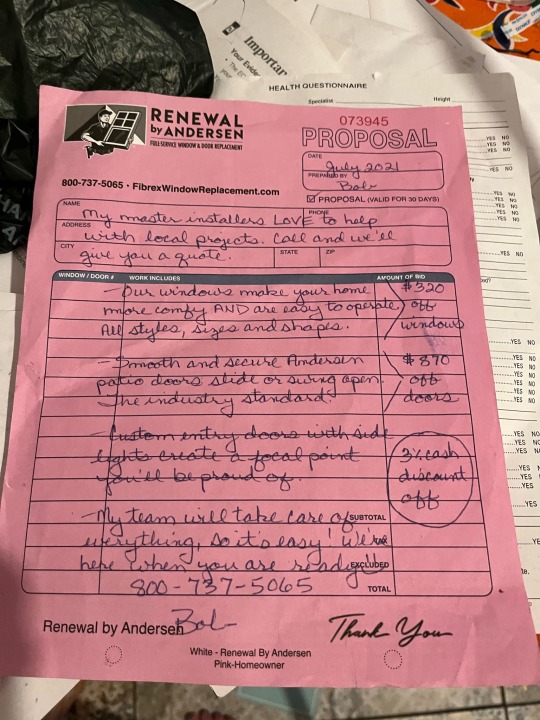 Importan
Your Evide
HEALTH QUESTIONNAIRE
Specialist
Height
RENEWAL
by ANDERSEN
FULL-SERVICE WINDOW & DOOR REPLACEMENT
073945
PROPOSAL
DATE
July 2021
PREPARED BY
Bob
800-737-5065 • FibrexWindowReplacement.com
PROPOSAL (VALID FOR 30 DAYS)
NAME
PHONE
My master installers LOVE to help
ADDRESS
with local projects. Call and we'll
CITY
STATE
ZIP
give you a quote.
WINDOW / DOOR #
WORK INCLUDES
AMOUNT OF BID
- Our windows make your home
more comfy AND are easy to operate.
All styles, sizes and shapes.
$320
off
windows
- Smooth and secure Andersen
patio doors slide or swing open.
The industry standard.
$870
off
doors
- Custom entry doors with side
lights create a focal point
you'll be proud of.
3% cash
discount
off
- My team will take care of
SUBTOTAL
everything, so it's easy! We're
TAX
here when you are ready!
EXCLUDED
800-737-5065
TOTAL
Renewal by Andersen
Bob
Thank You
White - Renewal By Andersen
Pink-Homeowner
YES NO
YES NO
YES NO
YES NO
YES NO
YES NO
YES NO
YES NO
YES NO
YES NO
YES NO
YES NO
YES NO
YES NO